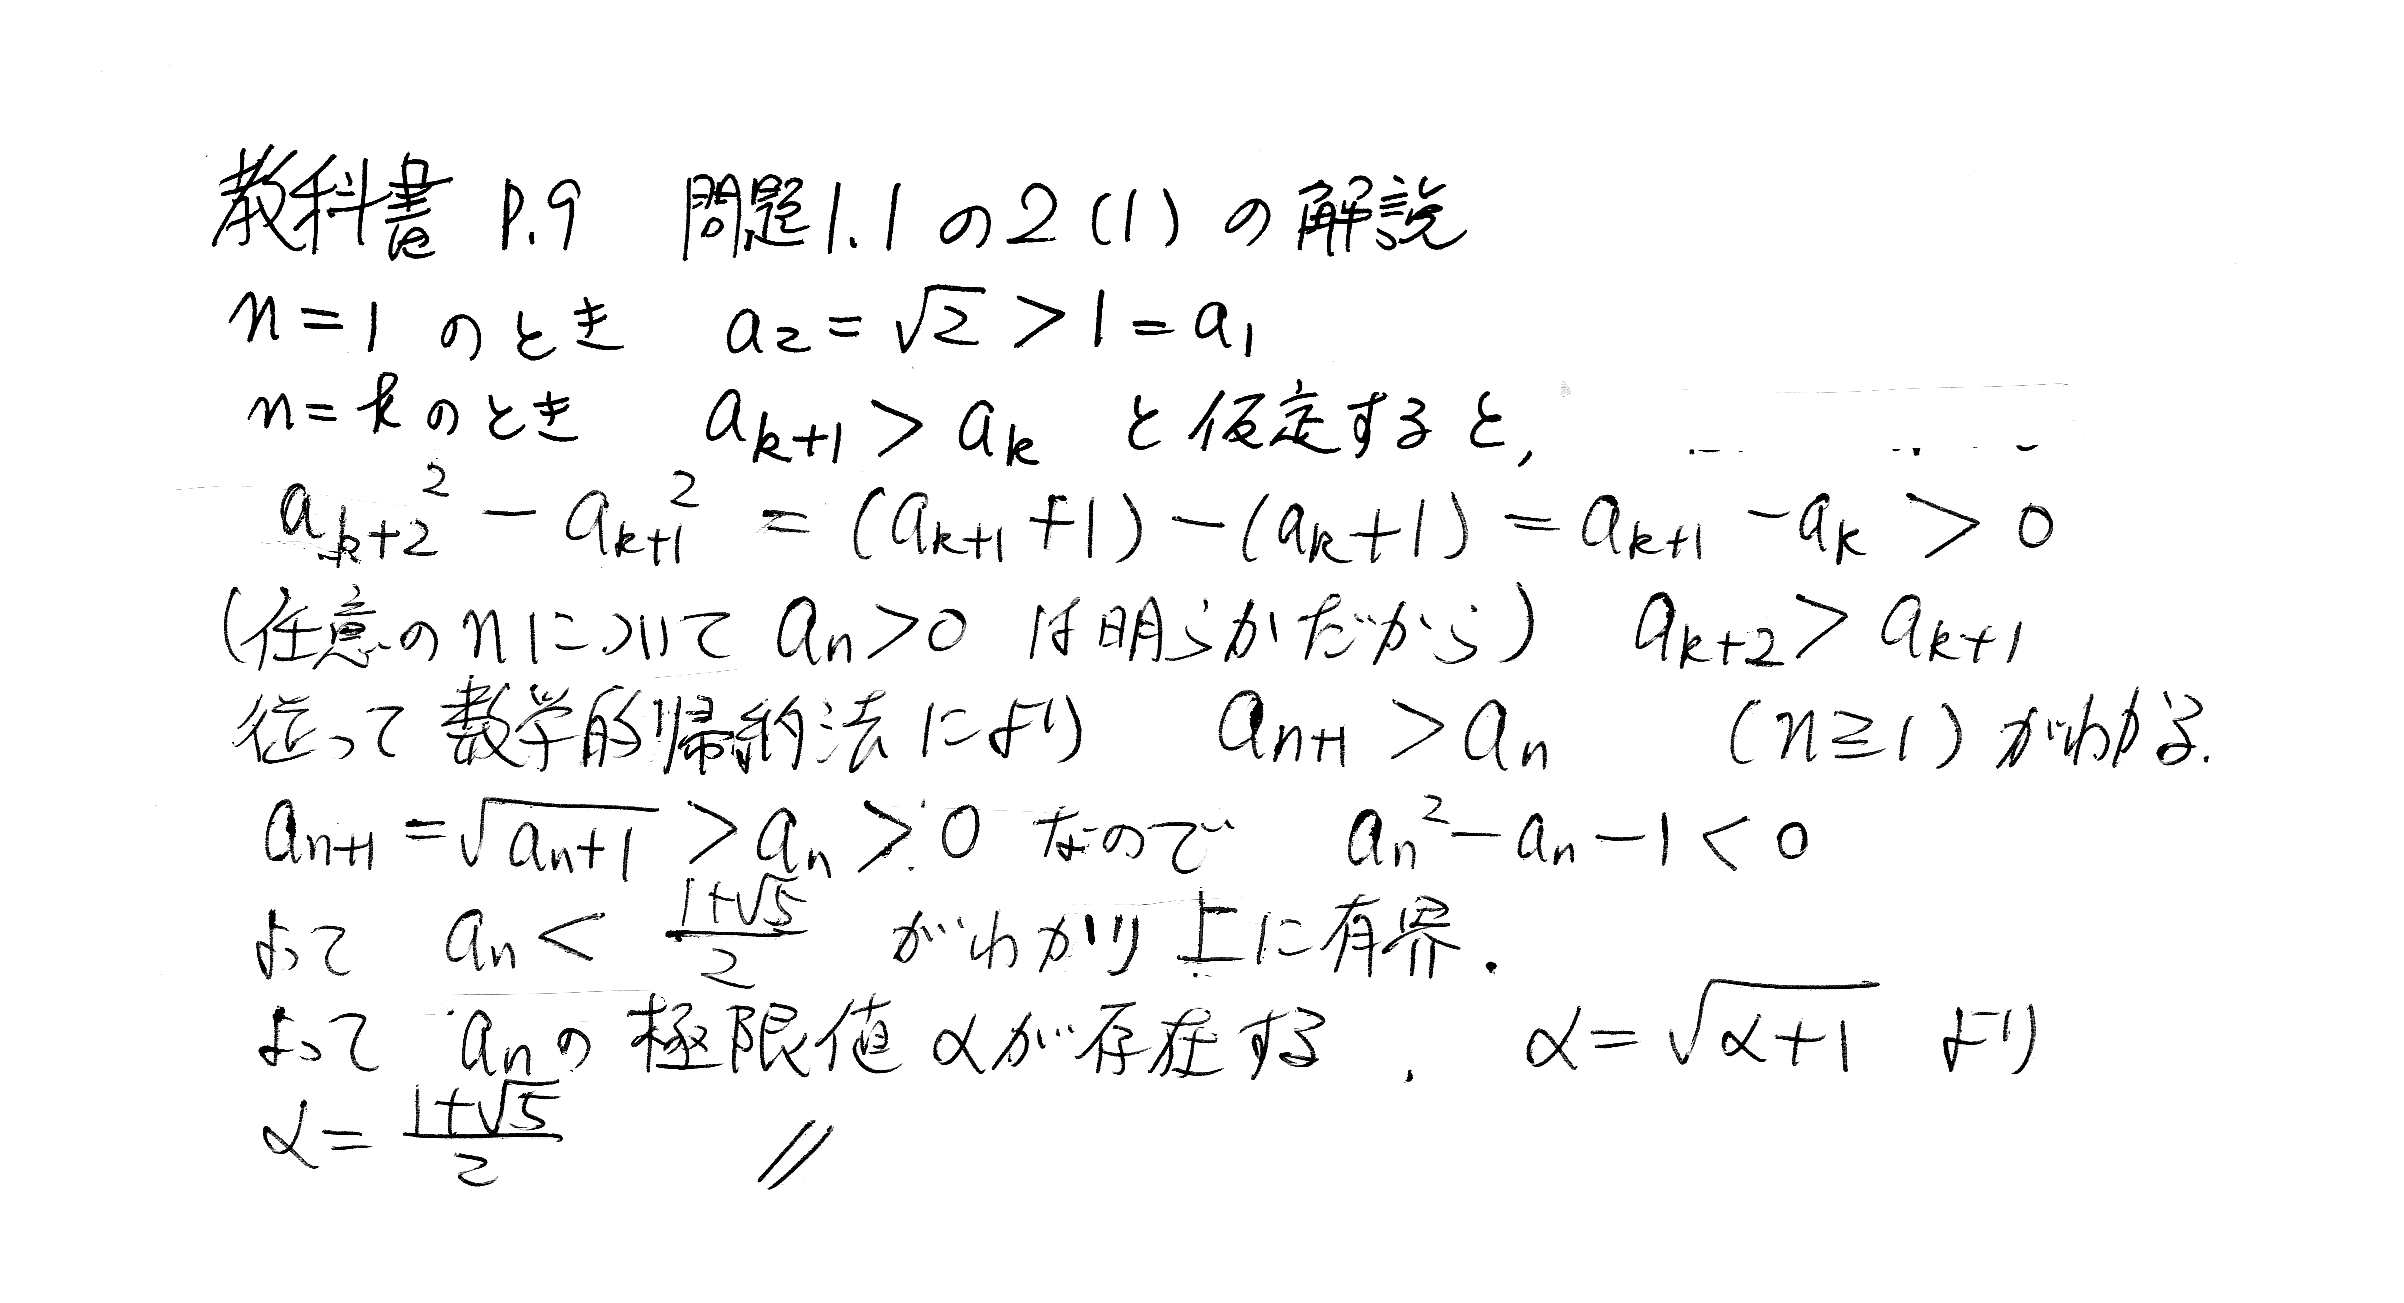 教科書 P.9 問題1.1の2(1)の解説
n=1のとき a₂=√2>1=a₁
n=kのとき aₖ₊₁>aₖ と仮定すると,
aₖ₊₂²−aₖ₊₁²=(aₖ₊₁+1)−(aₖ+1)=aₖ₊₁−aₖ>0
(任意のnについて aₙ>0 は明らかだから) aₖ₊₂>aₖ₊₁
従って数学的帰納法により aₙ₊₁>aₙ (n≧1)がわかる.
aₙ₊₁=√(aₙ+1)>aₙ>0 なので aₙ²−aₙ−1<0
よって aₙ<(1+√5)/2 がわかり上に有界.
よって aₙの極限値αが存在する. α=√(α+1) より
α=(1+√5)/2 //